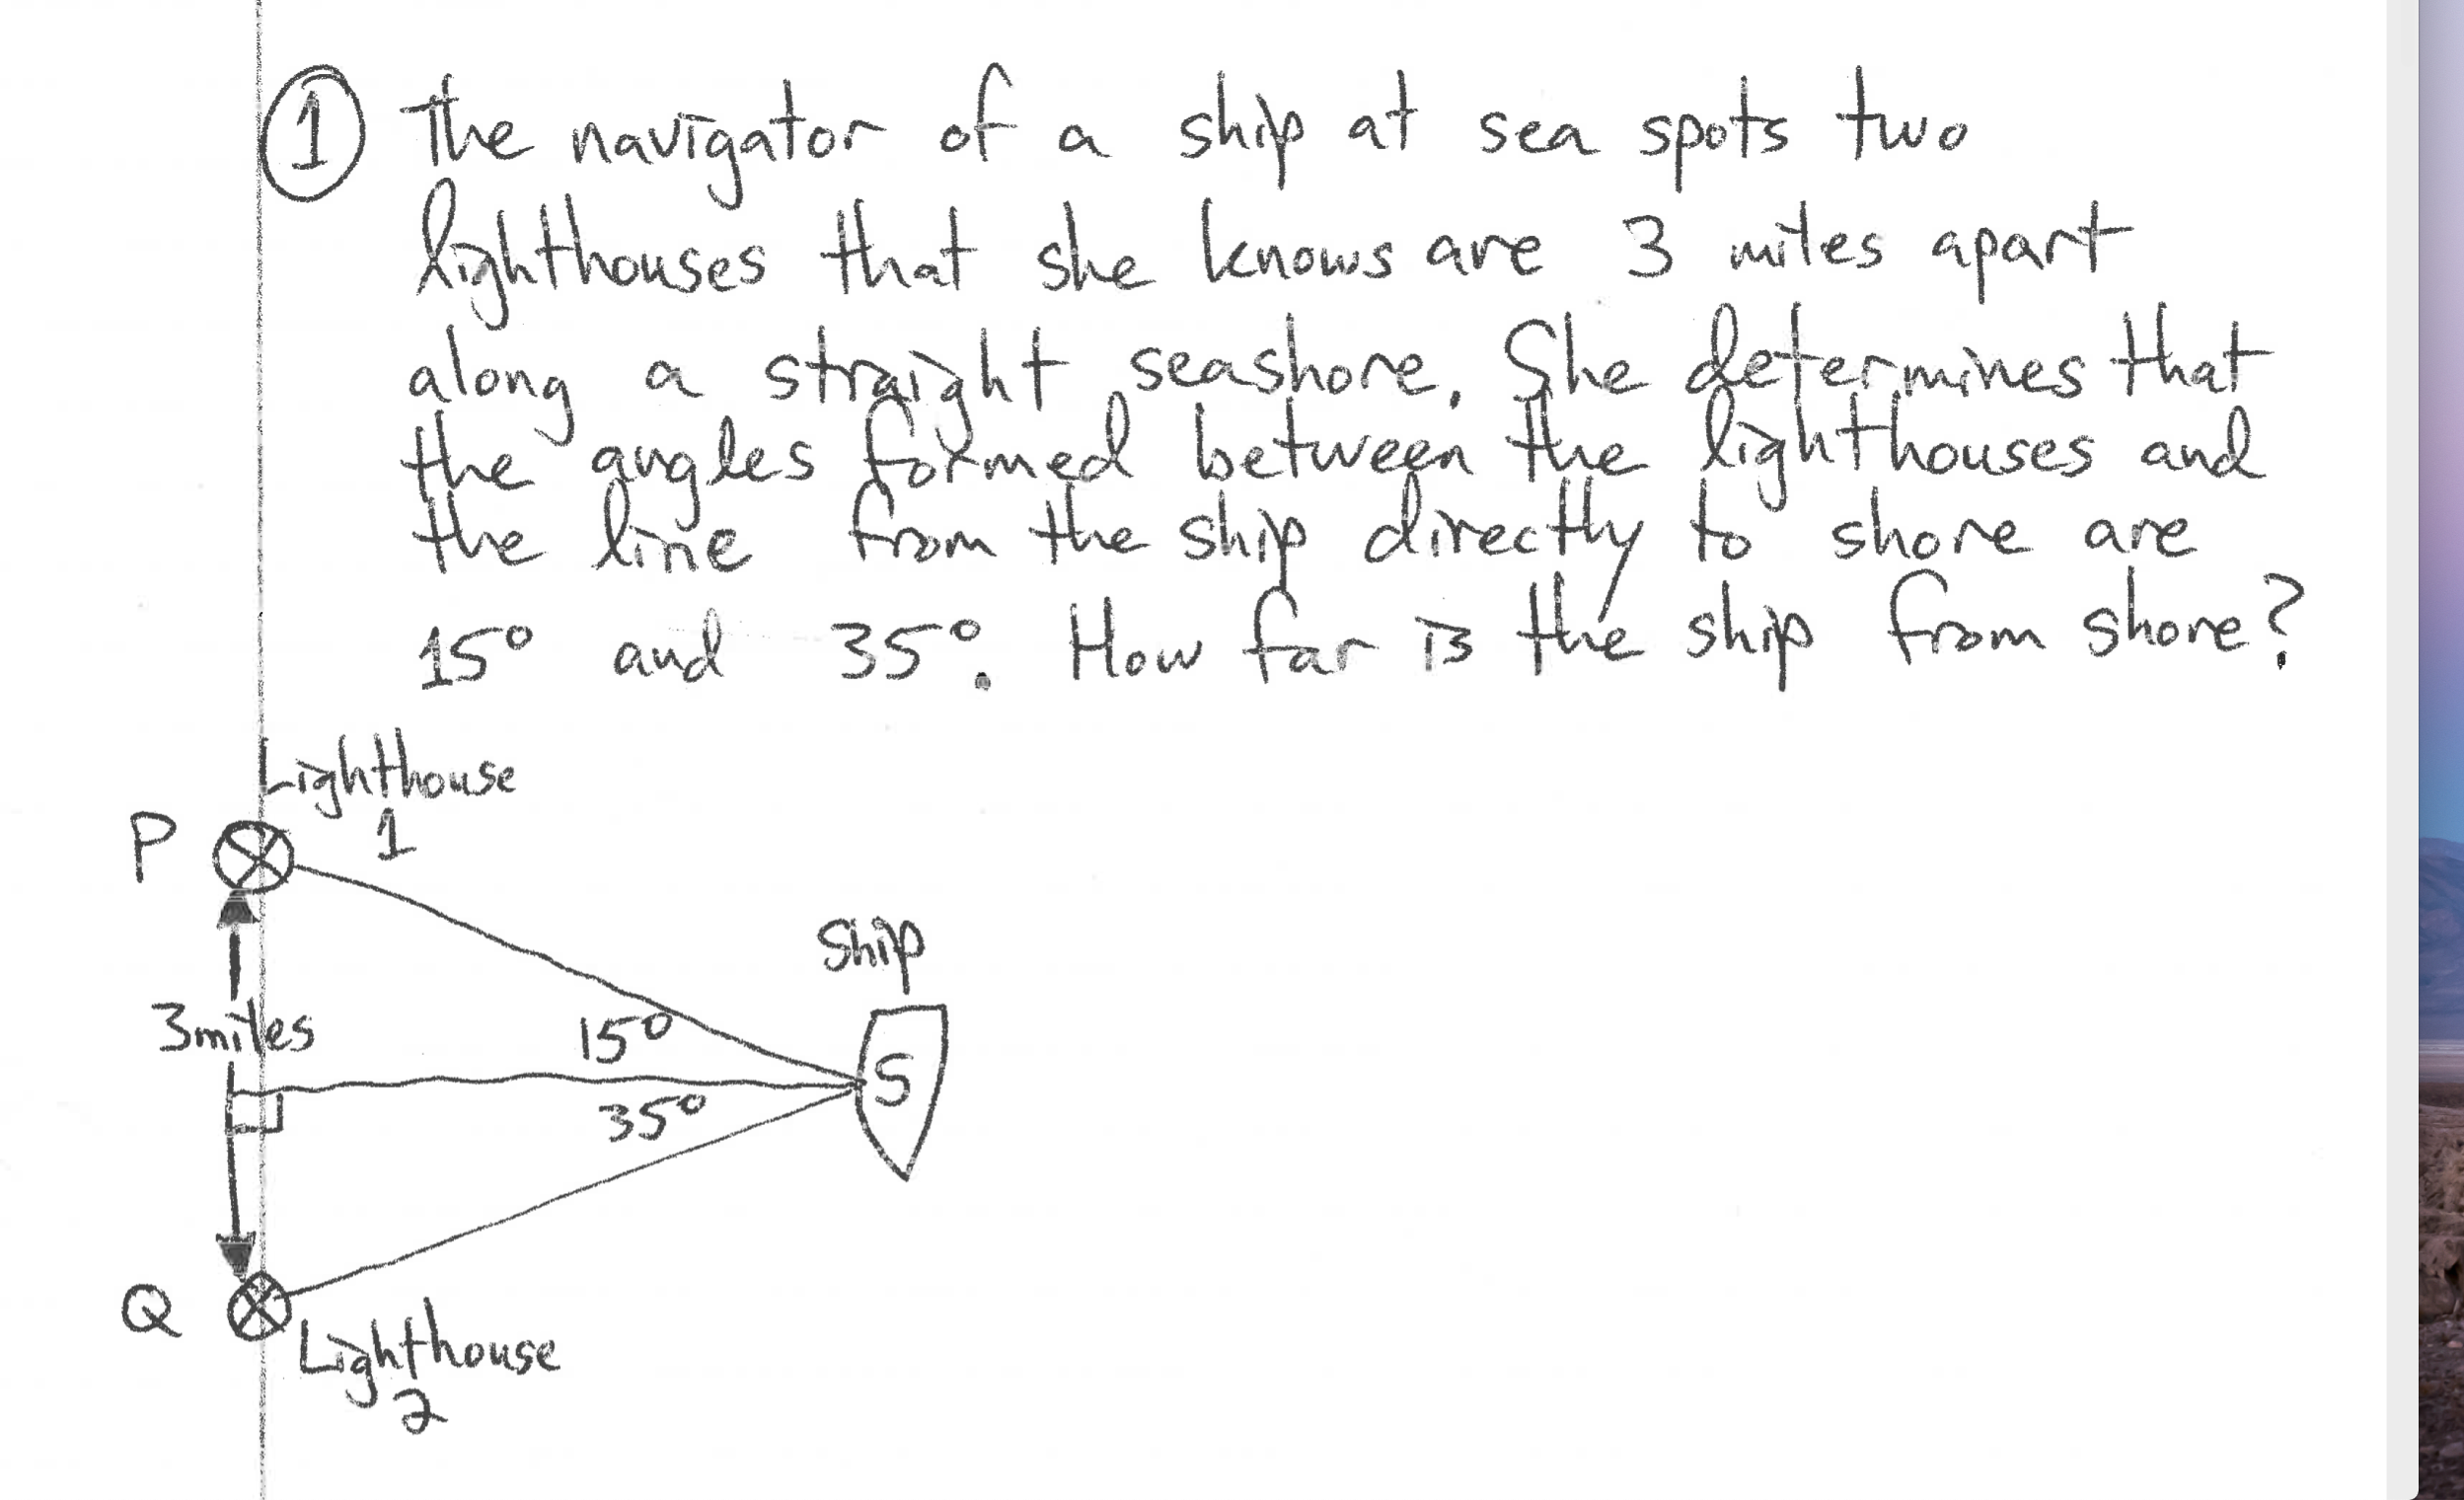 1 The navigator of a ship at sea spots two
lighthouses that she knows are 3 miles apart
along a straight seashore. She determines that
the angles formed between the lighthouses and
the line from the ship directly to shore are
15° and 35°. How far is the ship from shore?
Lighthouse
1
P
Ship
3 miles
15°
S
35°
Q
Lighthouse
2